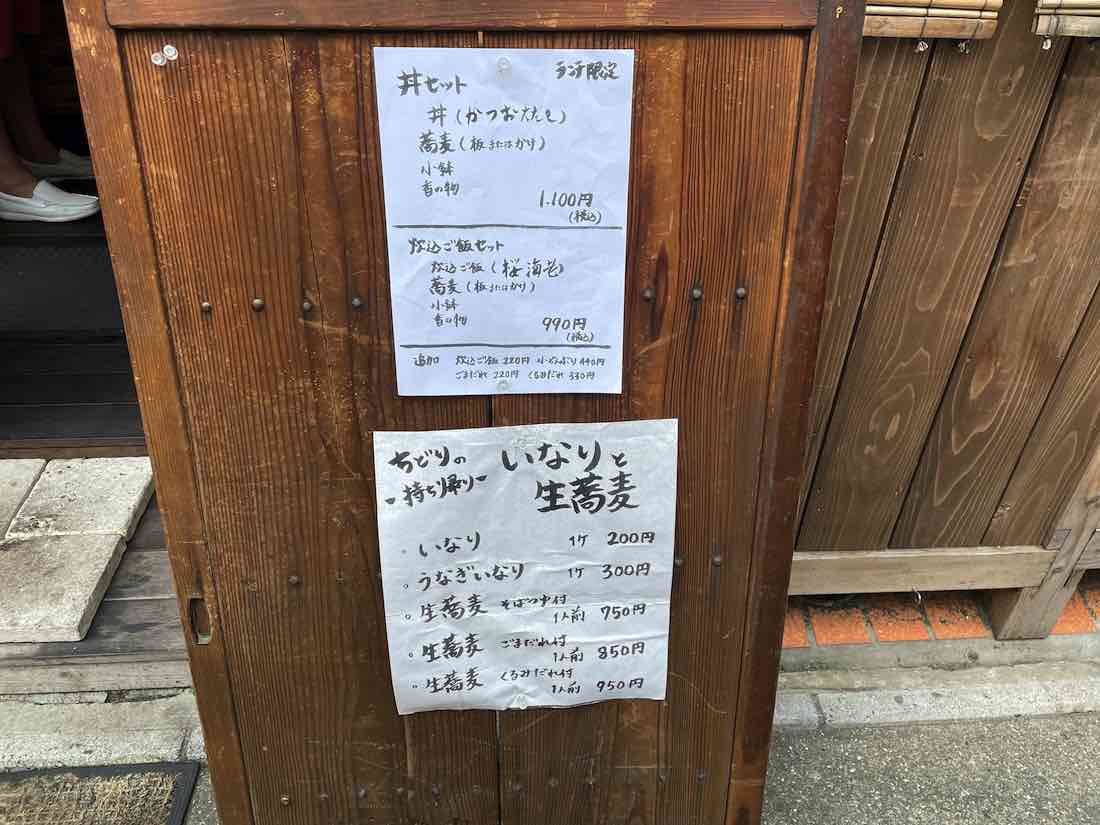 丼セット ランチ限定
丼(かつおたたき)
蕎麦(板またはかけ)
小鉢
香の物
1.100円
(税込)
炊込ご飯セット
炊込ご飯(桜海老)
蕎麦(板またはかけ)
小鉢
香の物
990円
(税込)
追加 炊込ご飯 220円 小どんぶり 440円
ごまだれ 220円 くるみだれ 330円
ちどりの
-持ち帰り-
いなりと
生蕎麦
。いなり 1ケ 200円
。うなぎいなり 1ケ 300円
。生蕎麦 そばつゆ付 1人前 750円
。生蕎麦 ごまだれ付 1人前 850円
。生蕎麦 くるみだれ付 1人前 950円